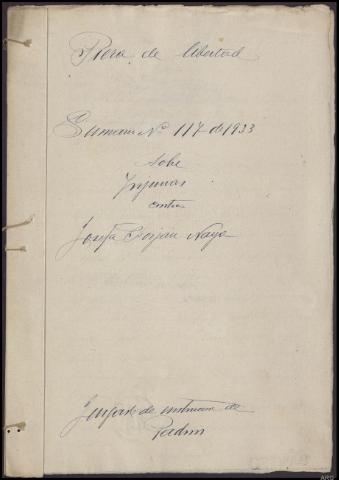 Pieza de libertad
Sumario Nº 117 de 1933
sobre
Injurias
contra
Josefa Noya
Juzgado de instrucción de
Padrón
ARG